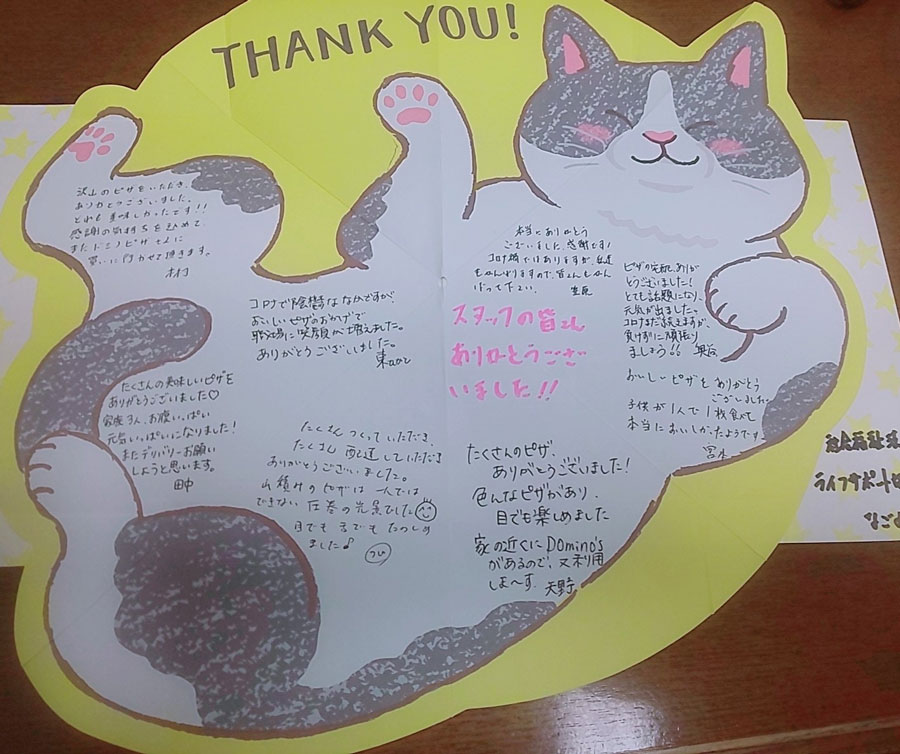 THANK YOU!
沢山のピザをいただき、
ありがとうございました。
とても美味しかったです!!
感謝の気持ちを込めて、
またドミノピザさんに
買いに行かせて頂きます。
木村
コロナで陰鬱ななかですが、
おいしいピザのおかげで
職場に笑顔が増えました。
ありがとうございしました。
東
たくさんの美味しいピザを
ありがとうございました♡
家族3人、お腹いっぱい
元気いっぱいになりました!
またデリバリーお願い
しようと思います。
田中
たくさんつくっていただき、
たくさん配達していただき
ありがとうございました。
山積みのピザは一人では
できない圧巻の光景でした
目でも舌でもたのしめ
ました♪
本当にありがとう
ございました。感謝です!
コロナ禍ではありますが、私達
もがんばりますので、皆さんもがん
ばって下さい。
スタッフの皆さん
ありがとうござ
いました!!
ピザの宅配、ありが
とうございました!
とても話題になり、
元気が出ました。
コロナまだ続きますが、
負けずに頑張り
ましょう!!
おいしいピザをありがとう
ございました
子供が1人で1枚食べて
本当においしかったようです。
たくさんのピザ、
ありがとうございました!
色んなピザがあり、
目でも楽しめました
家の近くにDomino's
があるので、又利用
しま〜す。天野。
ライフサポート
なご